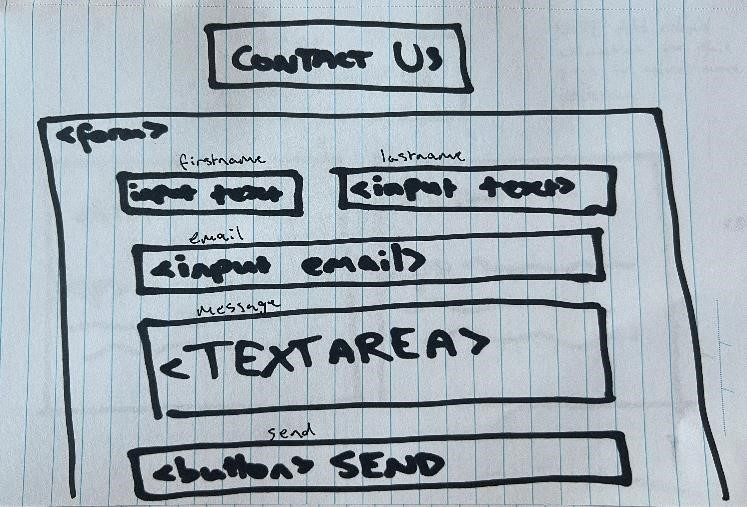 CONTACT US
<form>
firstname lastname
input text <input text>
email
<input email>
message
<TEXTAREA>
send
<button> SEND